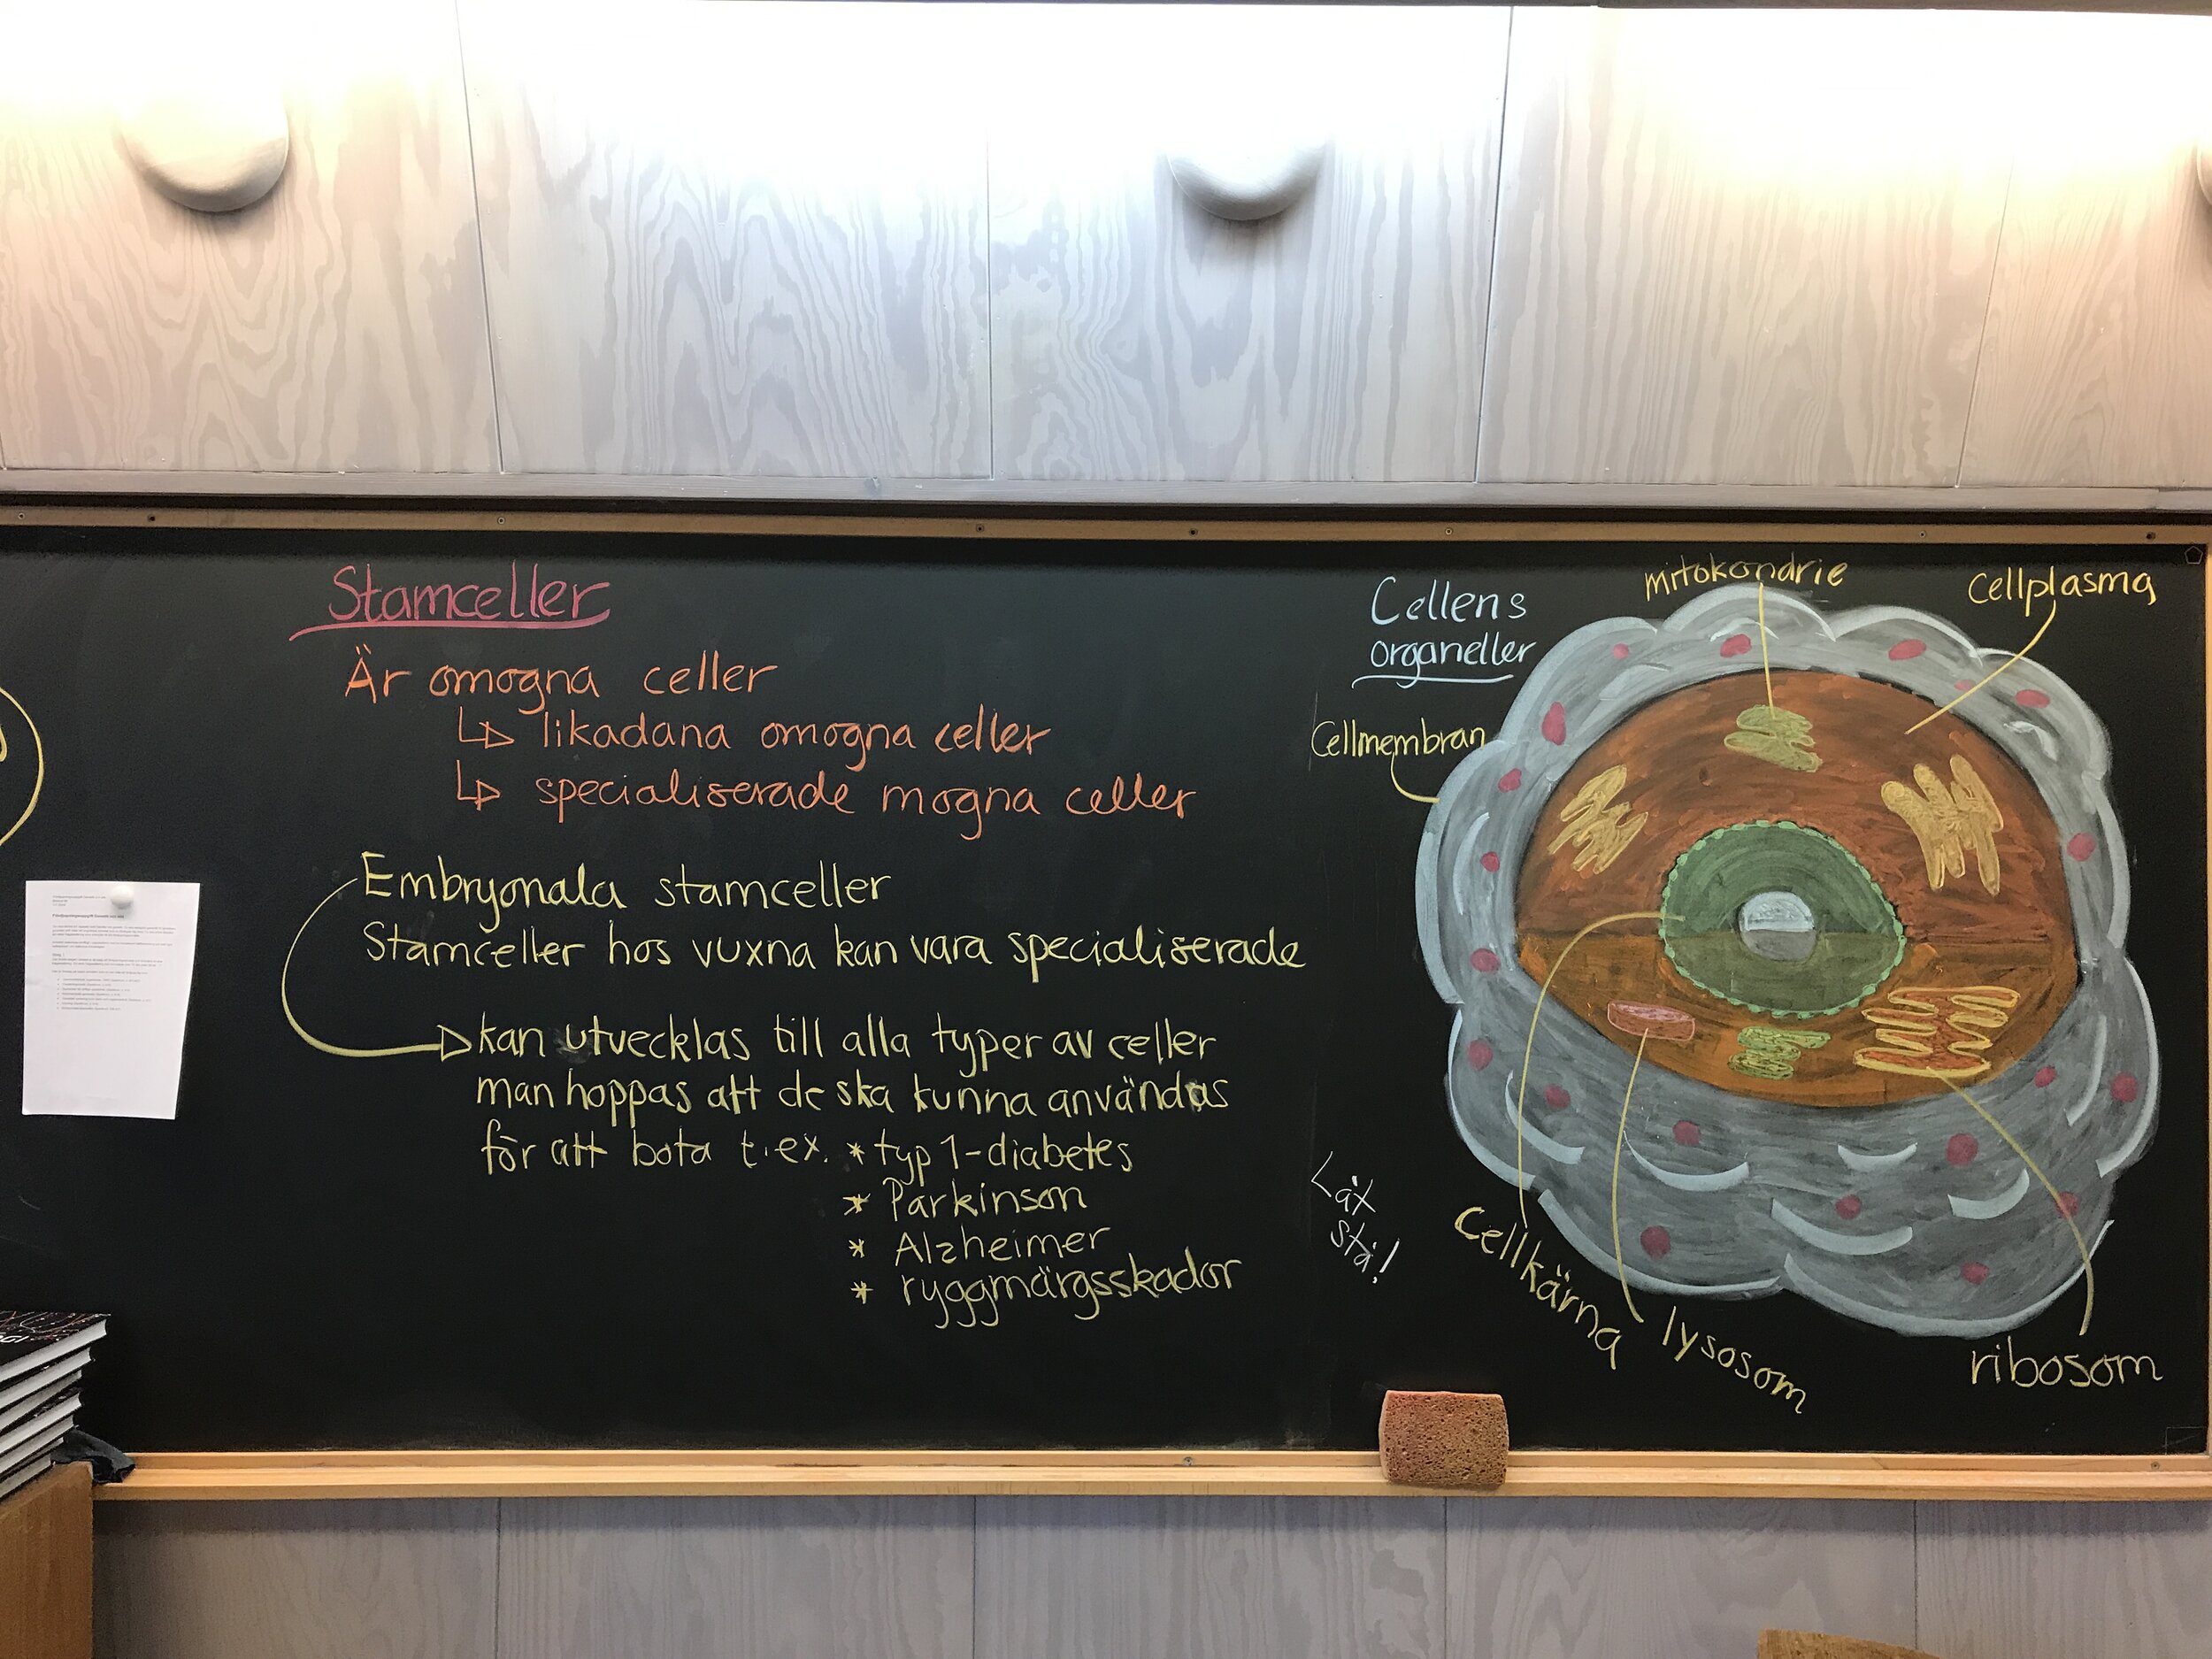 Stamceller
Är omogna celler
↳ likadana omogna celler
↳ specialiserade mogna celler
Embryonala stamceller
Stamceller hos vuxna kan vara specialiserade
kan utvecklas till alla typer av celler
man hoppas att de ska kunna användas
för att bota t.ex. * typ 1-diabetes
* Parkinson
* Alzheimer
* ryggmärgsskador
Cellens
organeller
mitokondrie
cellplasma
Cellmembran
Låt
stå!
Cellkärna
lysosom
ribosom